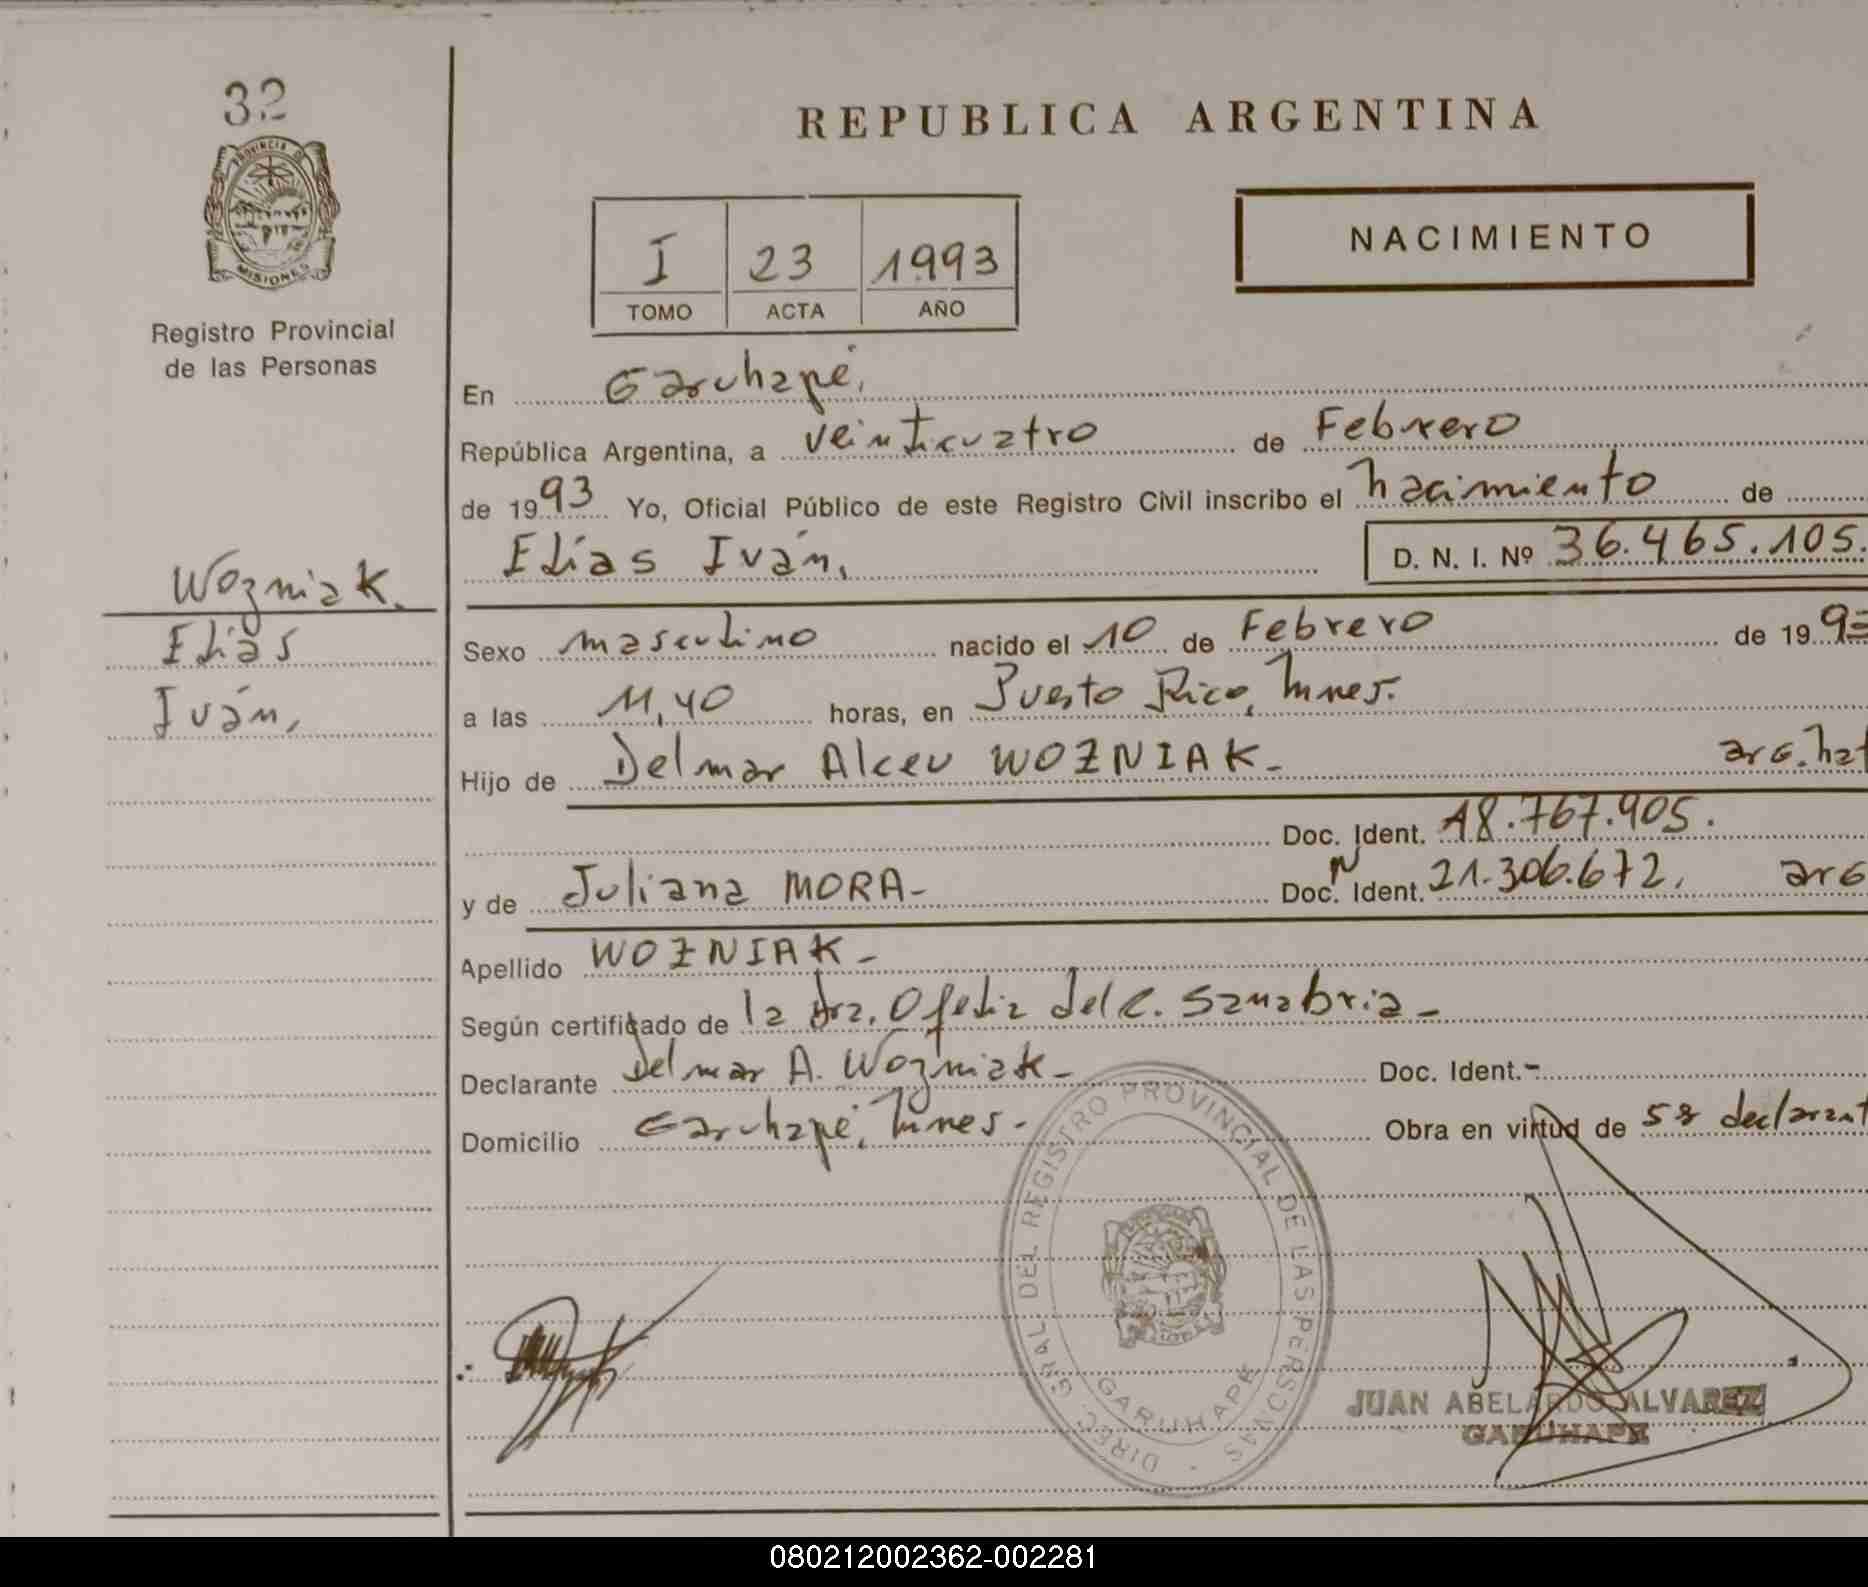 32
PROVINCIA DE
MISIONES
Registro Provincial
de las Personas
Wozniak.
Elías
Iván,
REPUBLICA ARGENTINA
I 23 1993
TOMO ACTA AÑO
NACIMIENTO
En Garuhapé,
República Argentina, a veinticuatro de Febrero
de 1993 Yo, Oficial Público de este Registro Civil inscribo el nacimiento de
Elías Iván, D. N. I. Nº 36.465.105.
Sexo masculino nacido el 10 de Febrero de 1993
a las 11,40 horas, en Puerto Rico, Mnes.
Hijo de Delmar Alceu WOZNIAK- arg. nat
Doc. Ident. 18.767.905.
y de Juliana MORA- Doc. N Ident. 21.306.672, arg
Apellido WOZNIAK-
Según certificado de la dra. Ofelia del C. Sanabria-
Declarante Delmar A. Wozniak- Doc. Ident.-
Domicilio Garuhapé, Mnes.- Obra en virtud de ser declarant
DIREC. GRAL. DEL REGISTRO PROVINCIAL DE LAS PERSONAS -
GARUHAPE
JUAN ABELARDO ALVAREZ
GARUHAPE
080212002362-002281